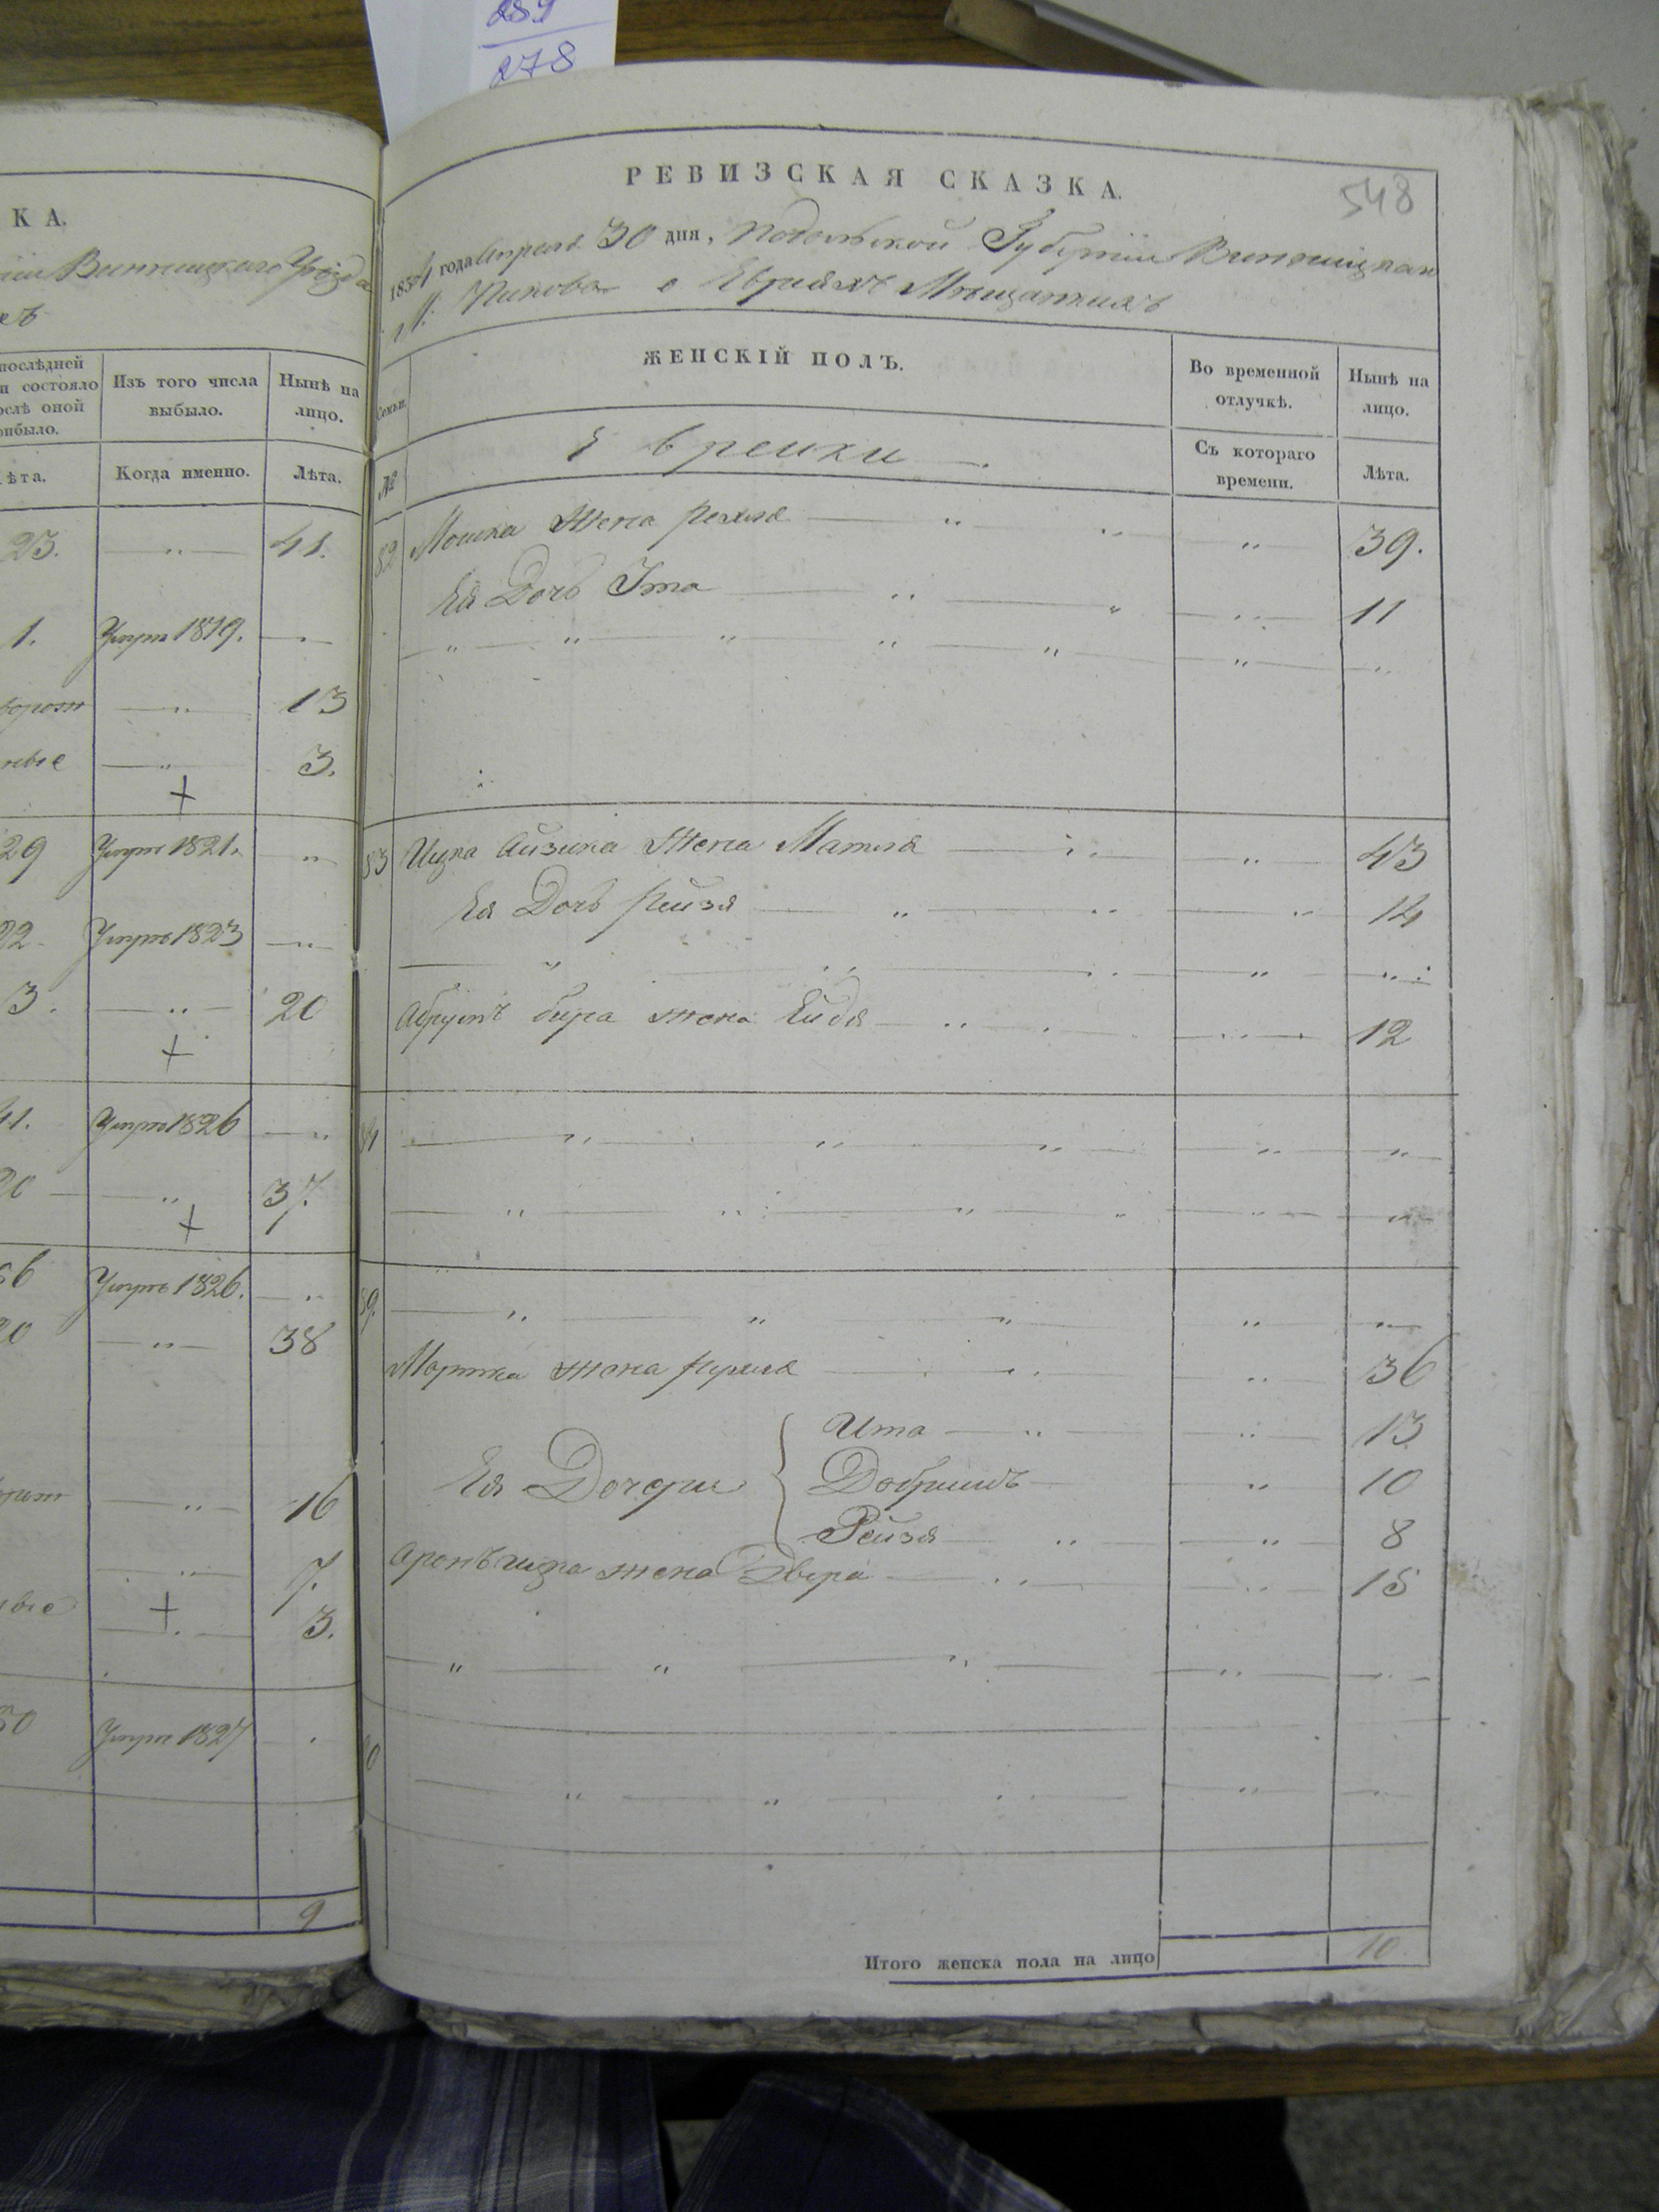 289
278
КА.
Винницкаго Уѣзда
послѣдней
и состояло
послѣ оной
прибыло.
Изъ того числа
выбыло.
Нынѣ на
лицо.
Лѣта.
Когда именно.
Лѣта.
23. — " — 41.
1. Умре 1819. — " —
— " — 13
— " — 3.
29 Умре 1821. "
22. Умре 1823 — " —
3. — " — 20
41. Умре 1826 — "
20 — " — 37.
56 Умре 1826. — "
20 — " — 38
— " — 16
— " — 7.
— " — 3.
50 Умре 1827
9
РЕВИЗСКАЯ СКАЗКА.
548
1834 года Апреля 30 дня, Подольской Губернiи Винницкаго
М: о Евреяхъ Мѣщанахъ
Семьи.
ЖЕНСКIЙ ПОЛЪ.
Во временной
отлучкѣ.
Нынѣ на
лицо.
№
Еврейки
Съ котораго
времени.
Лѣта.
82 Мошка жена Рехля — " " " 39.
Ея Дочь Ита — " — " — " — 11
83 Ицка Айзика жена Матля — " " — 43
Ея Дочь Рейзя — " — " — " 14
жена — " " 12
84 — " — " — " — " — "
89. — " — " — " " "
Мортка жена Рухля — " " 36
Ея Дочери
Ита — " — " — 13
Добришъ — " — 10
Рейзя — " — " — 8
Аронъ Ицка жена Двера — " — " — 15
90
Итого женска пола на лицо
10